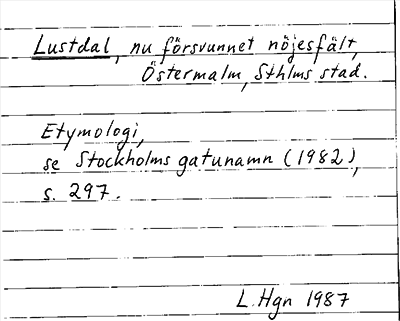 Lustdal, nu försvunnet nöjesfält,
Östermalm, Sthlms stad.
Etymologi,
se Stockholms gatunamn (1982),
s. 297.
L. Hgn 1987